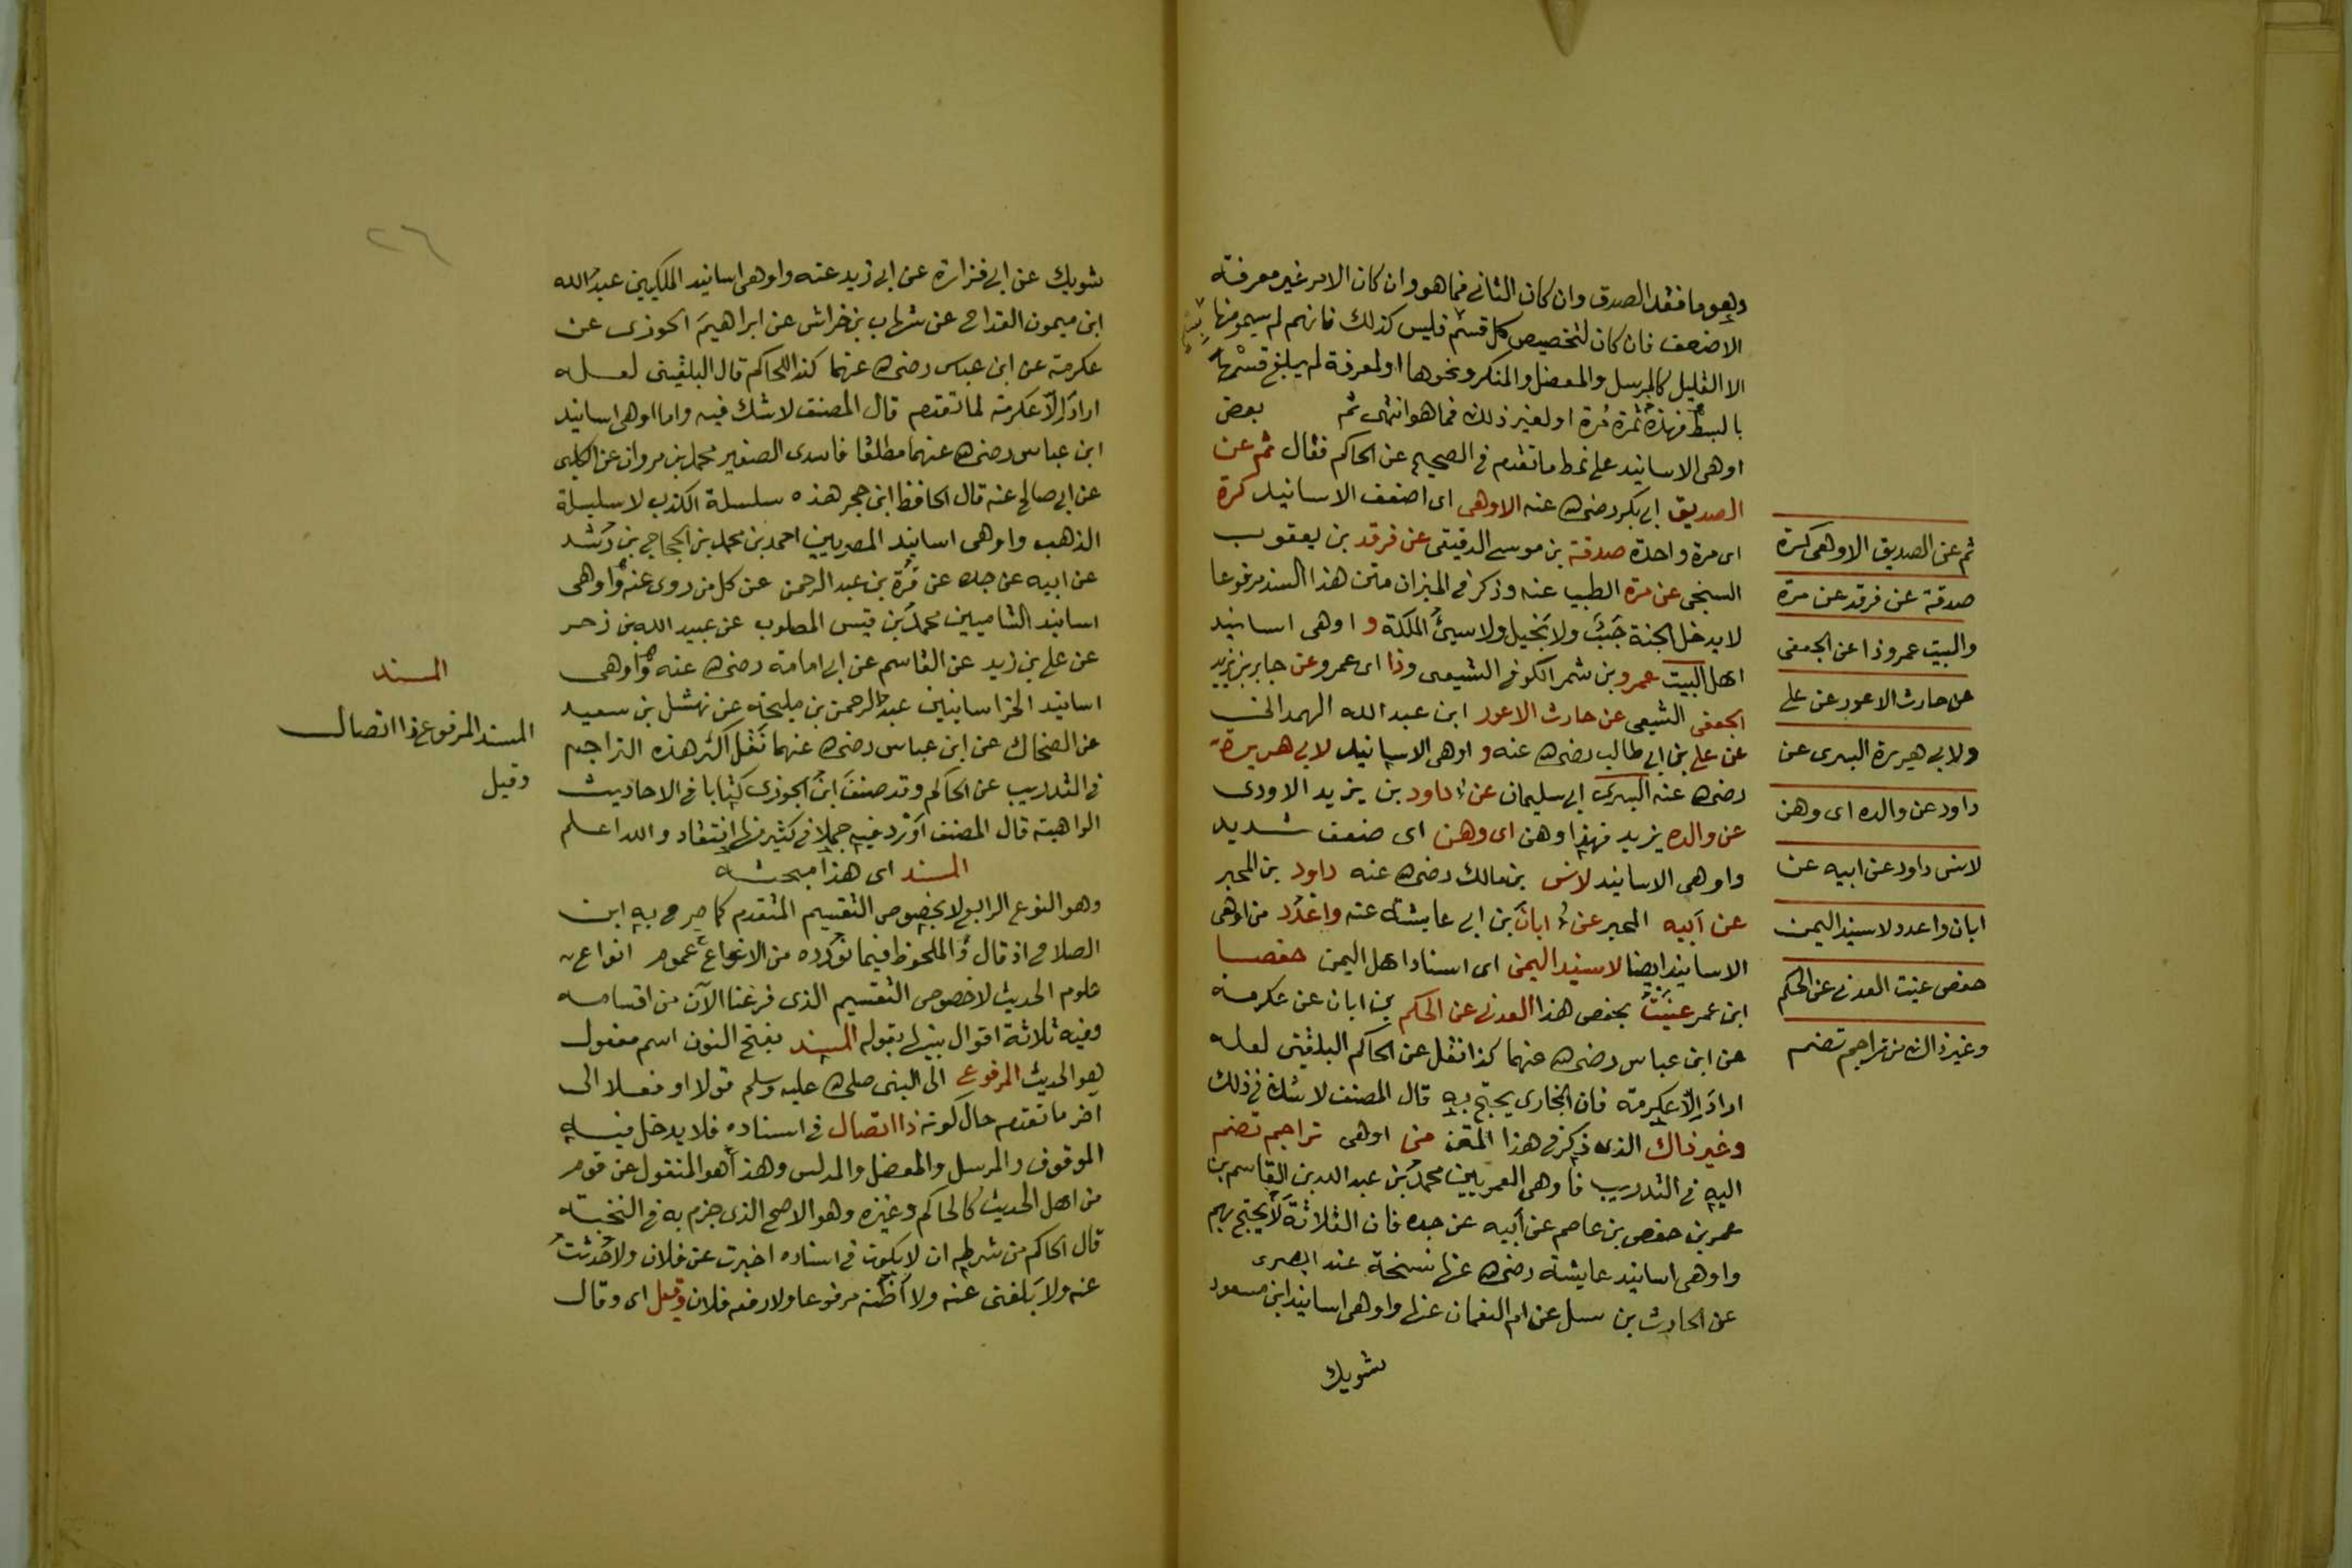 وهو ما فقد الصدق وان كان الثانى فما هو وان كان الامر غير معرفة
الاضعف فان كان لتخصيص كل قسم فليس كذلك فانهم لم يسموا منها
الا القليل كالمرسل والمعضل والمنكر ونحوها او لمعرفة لم يبلغ قسمها
بالبسط فهذه ثمرة مرة او لغير ذلك فما هو انتهى ثم بعض
اوهى الاسانيد على نمط ما تقدم فى الصحيح عن الحاكم فقال ثم عن
الصديق ابى بكر رضى الله عنه الاوهى اى اضعف الاسانيد كرة
اى مرة واحدة صدقة بن موسى الدقيقى عن فرقد بن يعقوب
السبخى عن مرة الطيب عنه وذكر فى الميزان متن هذا السند مرفوعا
لا يدخل الجنة خب ولا بخيل ولا سيئ الملكة و اوهى اسانيد
اهل البيت عمرو بن شمر الكوفى الشيعى وذا اى عمرو عن جابر بن يزيد
الجعفى الشيعى عن حارث الاعور ابن عبد الله الهمدانى
عن على بن ابى طالب رضى الله عنه و اوهى الاسانيد لابى هريرة
رضى الله عنه السرى ابى سليمان عن داود بن يزيد الاودى
عن والده يزيد فهذا وهن اى وهن اى ضعف شديد
واوهى الاسانيد لانس بن مالك رضى الله عنه داود بن المحبر
عن ابيه المحبر عن ابان بن ابى عايشة عنه واعدد من اوهى
الاسانيد ايضا لاسنيد اليمن اى اسناد اهل اليمن حفصا
ابن عمر عنيت بحفص هذا العدنى عن الحكم بن ابان عن عكرمة
عن ابن عباس رضى الله عنهما كذا نقل عن الحاكم البلقينى لعله
اراد الا عكرمة فان البخارى يحتج به قال المصنف لا شك فى ذلك
وغير ذاك الذى ذكر فى هذا المتن من اوهى تراجم تضم
اليه فى التدريب فاوهى العمريين محمد بن عبد الله بن القاسم بن
عمر بن حفص بن عاصم عن ابيه عن جده فان الثلاثة لا يحتج بهم
واوهى اسانيد عايشة رضى الله عنها نسخة عند البصرى
عن الحارث بن سبل عن ام النعمان عنها واوهى اسانيد ابن مسعود
شويك
ثم عن الصديق الاوهى كرة
صدقة عن فرقد عن مرة
والبيت عمرو ذا عن الجعفى
عن حارث الاعور عن على
ولابى هريرة السرى عن
داود عن والده اى وهن
لانس داود عن ابيه عن
ابان واعدد لاسنيد اليمن
حفص عنيت العدنى عن الحكم
وغير ذاك من تراجم تضم
٢٦
شويك عن ابى فزارة عن ابى زيد عنه واوهى اسانيد المكيين عبد الله
ابن ميمون القداح عن شهاب بن خراش عن ابراهيم الخوزى عن
عكرمة عن ابن عباس رضى الله عنهما كذا للحاكم قال البلقينى لعله
اراد الا عكرمة لما تقدم قال المصنف لا شك فيه واما اوهى اسانيد
ابن عباس رضى الله عنهما مطلقا فالسدى الصغير محمد بن مروان عن الكلبى
عن ابى صالح عنه قال الحافظ ابن حجر هذه سلسلة الكذب لا سلسلة
الذهب واوهى اسانيد المصريين احمد بن محمد بن الحجاج بن رشد
عن ابيه عن جده عن قرة بن عبد الرحمن عن كل من روى عنه واوهى
اسانيد الشاميين محمد بن قيس المصلوب عن عبيد الله بن زحر
عن على بن زيد عن القاسم عن ابى امامة رضى الله عنه واوهى
اسانيد الخراسانيين عبد الرحمن بن مليحة عن نهشل بن سعيد
عن الضحاك عن ابن عباس رضى الله عنهما نقل اكثر هذه التراجم
فى التدريب عن الحاكم وقد صنف ابن الجوزى كتابا فى الاحاديث
الواهية قال المصنف اورد فيه جملا فى كثير منها انتقاد والله اعلم
المسند اى هذا مبحثه
وهو النوع الرابع لا بخصوص التقسيم المتقدم كما صرح به ابن
الصلاح اذ قال والملحوظ فيما نورده من الانواع عموم انواع
علوم الحديث لا خصوص التقسيم الذى فرغنا الآن من اقسامه
وفيه ثلاثة اقوال بينها بقوله المسند بفتح النون اسم مفعول
هو الحديث المرفوع الى النبى صلى الله عليه وسلم قولا او فعلا الى
آخر ما تقدم حال كونه ذا اتصال فى اسناده فلا يدخل فيه
الموقوف والمرسل والمعضل والمدلس وهذا هو المنقول عن قوم
من اهل الحديث كالحاكم وغيره وهو الاصح الذى جزم به فى النخبة
قال الحاكم من شرطه ان لا يكون فى اسناده اخبرت عن فلان ولا حدثت
عنه ولا بلغنى عنه ولا اظنه مرفوعا ولا رفعه فلان وقيل اى وقال
المسند
المسند المرفوع ذا اتصال
وقيل